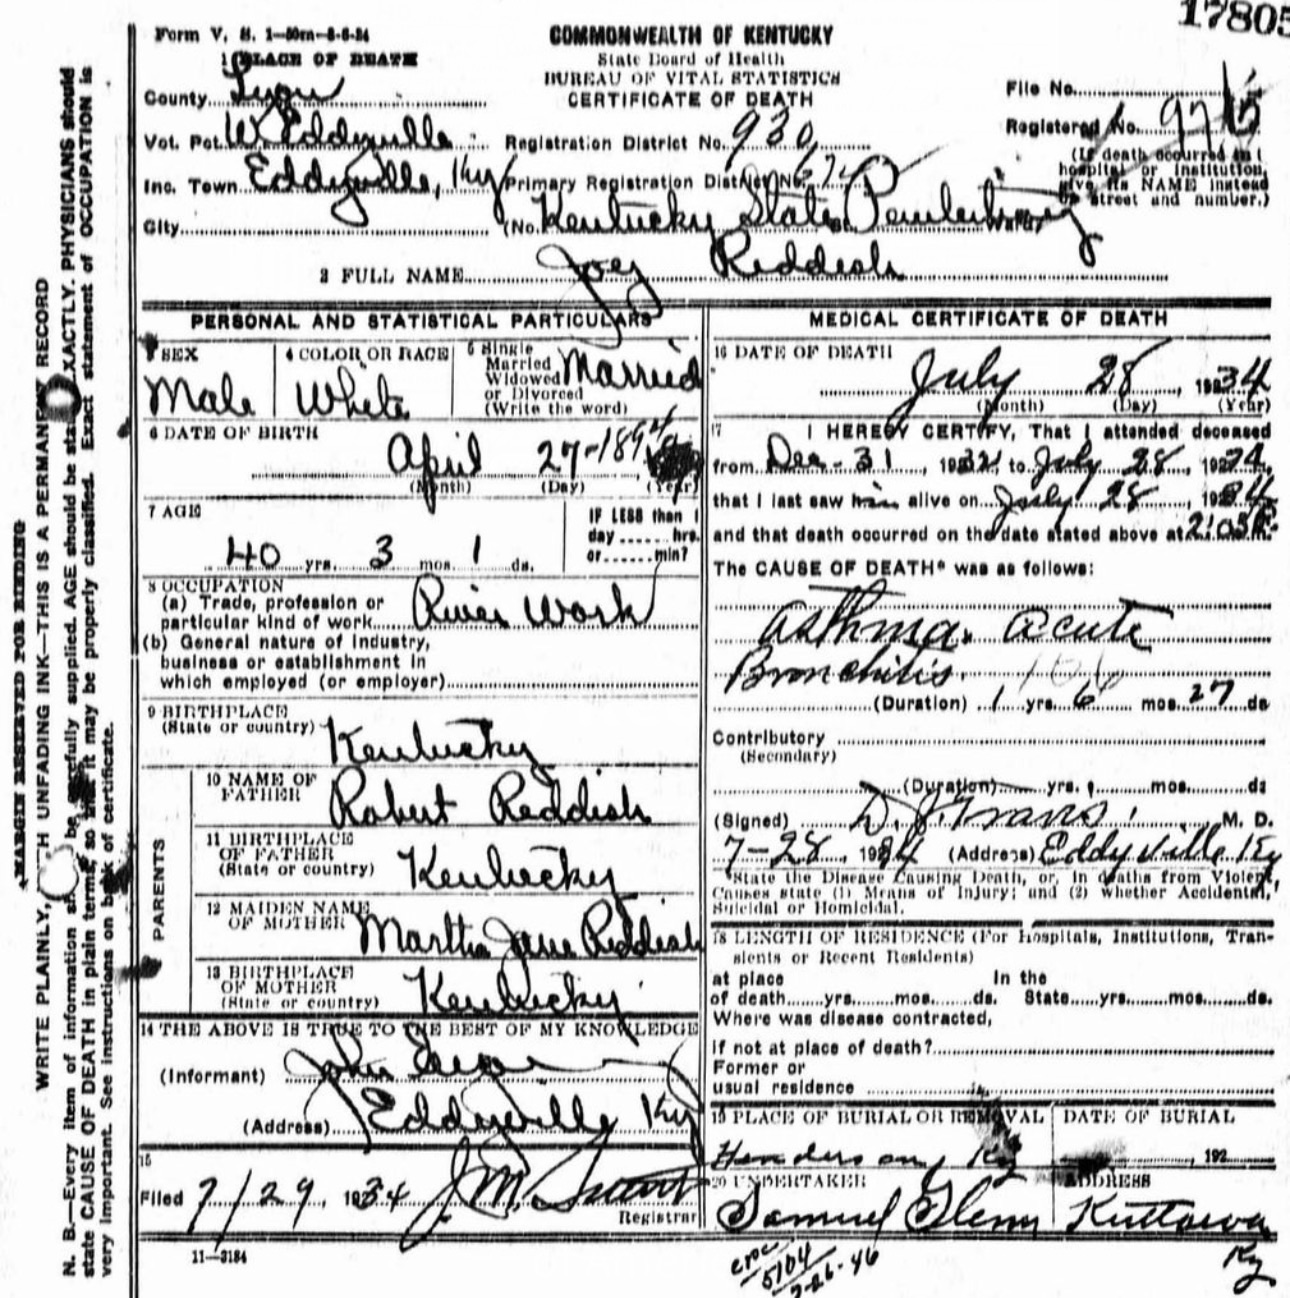 17805
Form V. S. 1—50m—8-6-24
COMMONWEALTH OF KENTUCKY
State Board of Health
BUREAU OF VITAL STATISTICS
CERTIFICATE OF DEATH
1 PLACE OF DEATH
County Lyon
Vot. Pct. W. Eddyville
Inc. Town Eddyville, Ky
City
Registration District No. 930
Primary Registration District No.
(No. Kentucky State Penitentiary St. Ward)
File No.
Registered No.
(If death occurred in
hospital or institution,
give its NAME instead
of street and number.)
2 FULL NAME Joey Reddish
PERSONAL AND STATISTICAL PARTICULARS
3 SEX
Male
4 COLOR OR RACE
White
5 Single
Married
Widowed
or Divorced
(Write the word)
Married
6 DATE OF BIRTH
April 27-1894
(Month) (Day) (Year)
7 AGE
40 yrs. 3 mos. 1 ds.
IF LESS than 1
day ...... hrs.
or ...... min?
8 OCCUPATION
(a) Trade, profession or
particular kind of work River Work
(b) General nature of industry,
business or establishment in
which employed (or employer)
9 BIRTHPLACE
(State or country) Kentucky
PARENTS
10 NAME OF
FATHER Robert Reddish
11 BIRTHPLACE
OF FATHER
(State or country) Kentucky
12 MAIDEN NAME
OF MOTHER Martha Jane Reddish
13 BIRTHPLACE
OF MOTHER
(State or country) Kentucky
14 THE ABOVE IS TRUE TO THE BEST OF MY KNOWLEDGE
(Informant) John
(Address) Eddyville Ky
15
Filed 7/29, 1934 J. M.
Registrar
11—3184
MEDICAL CERTIFICATE OF DEATH
16 DATE OF DEATH
July 28, 1934
(Month) (Day) (Year)
17 I HEREBY CERTIFY, That I attended deceased
from Dec - 31, 1932, to July 28, 1934,
that I last saw him alive on July 28, 1934
and that death occurred on the date stated above at 2:05 P. m.
The CAUSE OF DEATH* was as follows:
Asthma. acute
Bronchitis. 106
(Duration) 1 yrs. 6 mos. 27 ds
Contributory
(Secondary)
(Duration) yrs. mos. ds
(Signed) D. J. Travis M. D.
7-28, 1934 (Address) Eddyville Ky
*State the Disease Causing Death, or, in deaths from Violent
Causes state (1) Means of Injury; and (2) whether Accidental,
Suicidal or Homicidal.
18 LENGTH OF RESIDENCE (For Hospitals, Institutions, Tran-
sients or Recent Residents)
at place In the
of death yrs. mos. ds. State yrs. mos. ds.
Where was disease contracted,
if not at place of death?
Former or
usual residence
19 PLACE OF BURIAL OR REMOVAL
Henderson, Ky
DATE OF BURIAL
, 192
20 UNDERTAKER
Samuel Glenn
ADDRESS
Kuttawa
Ky
MARGIN RESERVED FOR BINDING
WRITE PLAINLY, WITH UNFADING INK—THIS IS A PERMANENT RECORD
N. B.—Every item of information should be carefully supplied. AGE should be stated EXACTLY. PHYSICIANS should
state CAUSE OF DEATH in plain terms, so that it may be properly classified. Exact statement of OCCUPATION is
very important. See instructions on back of certificate.